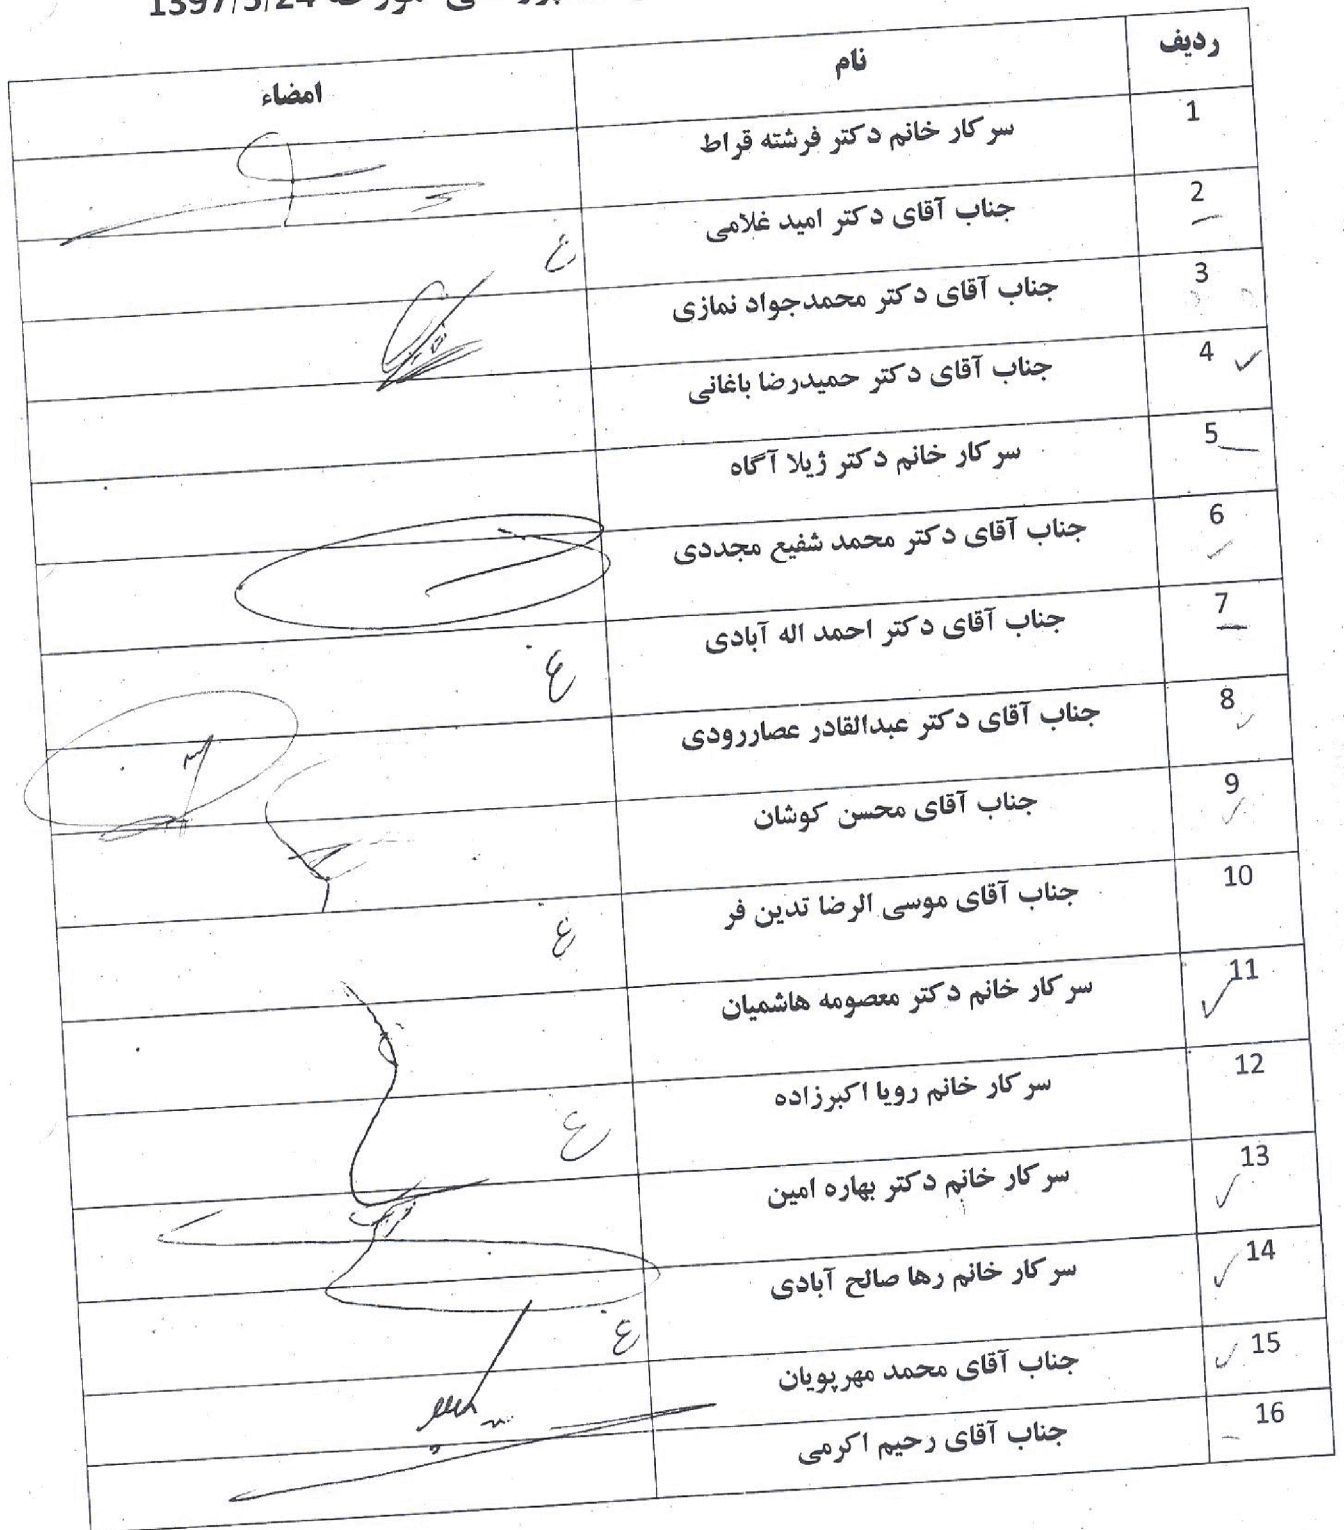 مورخه 1397/5/24
ردیف نام امضاء
1 سرکار خانم دکتر فرشته قراط
2 جناب آقای دکتر امید غلامی غ
3 جناب آقای دکتر محمدجواد نمازی
4 جناب آقای دکتر حمیدرضا باغانی
5 سرکار خانم دکتر ژیلا آگاه
6 جناب آقای دکتر محمد شفیع مجددی
7 جناب آقای دکتر احمد اله آبادی غ
8 جناب آقای دکتر عبدالقادر عصاررودی
9 جناب آقای محسن کوشان
10 جناب آقای موسی الرضا تدین فر غ
11 سرکار خانم دکتر معصومه هاشمیان
12 سرکار خانم رویا اکبرزاده غ
13 سرکار خانم دکتر بهاره امین
14 سرکار خانم رها صالح آبادی غ
15 جناب آقای محمد مهرپویان
16 جناب آقای رحیم اکرمی